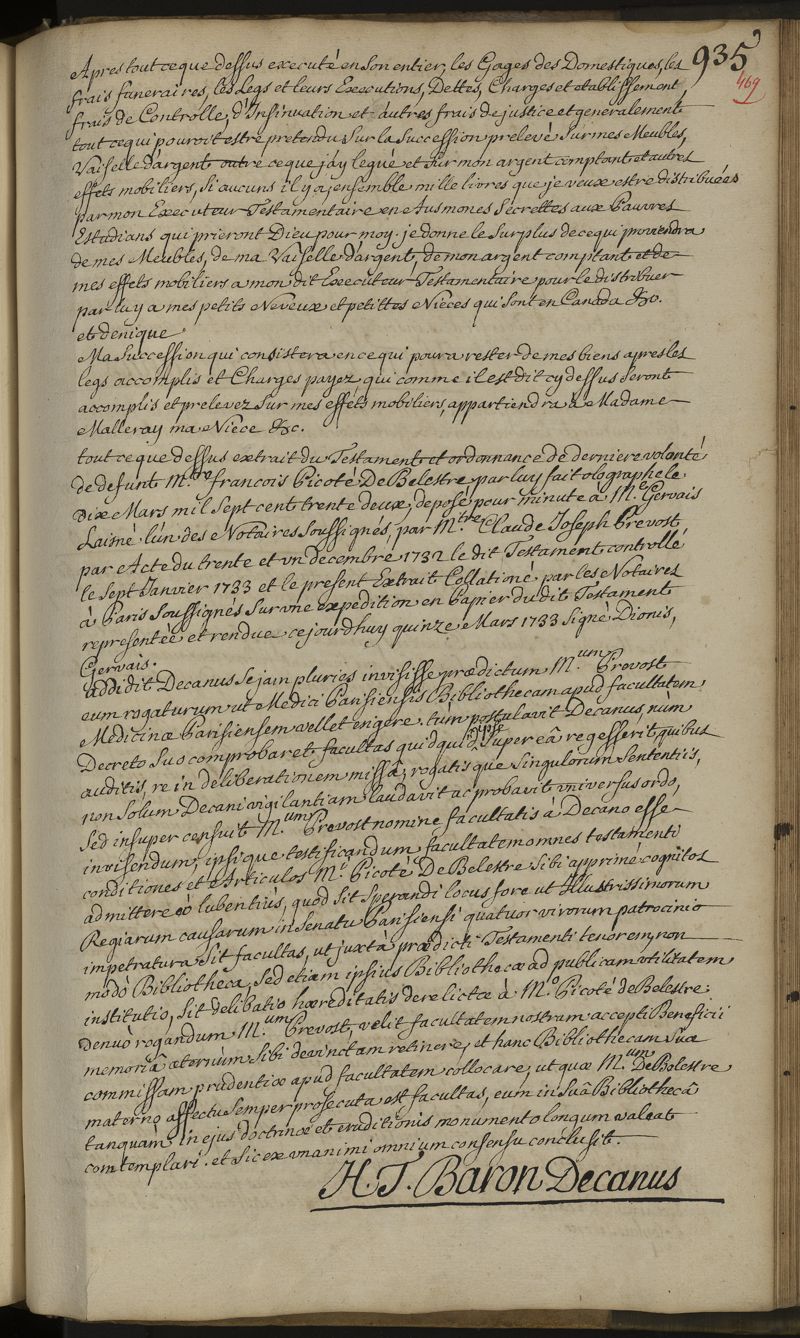 935
469
Apres tout ce que dessus executé en son entier, les Gages des Domestiques, les
frais funeraires, les Legs et leurs Executions, Dettes, Charges et etablissement
frais de Controlle, d'Insinuation et autres frais de justice et generalement
tout ce qui pouroit estre pretendu sur la Succession prelevé sur mes Meubles,
Vaiselle d'argent outre ce que j'ay legué et sur mon argent comptant et autres
effets mobiliers, si aucuns il y a, ensemble mille livres que je veux estre distribuées
par mon Executeur Testamentaire en Ausmones Secrettes aux Pauvres
Estudians qui prieront Dieu pour moy. je donne le Surplus de ce qui proviendra
de mes Meubles, de ma Vaiselle d'argent, de mon argent comptant et de
mes effets mobiliers a mon dit Executeur Testamentaire pour le distribuer
par luy a mes petits Neveux et petittes Nièces qui sont en Canada &c.
et denique
Ma Succession qui consistera en ce qui poura rester de mes biens apres les
legs accomplis et Charges payez, qui comme il est dit cy dessus seront
accomplis et prelevez sur mes effets mobiliers, appartiendra à Madame
Malleray ma Niece &c.
tout ce que dessus extrait du Testament et ordonnance de derniere volonté
de defunt M.tre francois Picoté De Belestre par luy fait olographe le
Dix Mars mil Sept cent trente deux, deposé pour minute à M.e Gervais
Laisné l'un des Notaires Soussignés, par M.tre Claude Joseph Prevost
par Acte du trente et un decembre 1732 le dit Testament controllé
le Sept Janvier 1733 et le present Extrait Collationé par les Notaires
à Paris Soussignés sur une expedition en Papier du dit Testament
representée et rendue ce jourdhuy quinze Mars 1733 Signé Dionis,
Gervais.
addidit Decanus se jam pluries invisisse prædictum M.um Prevost
eum rogaturum ut Medici Parisiensis Bibliothecam apud facultatem
Medicinæ Parisiensem vellet erigere, tùm postulavit Decanus, nùm
Decreto suo comprobaret facultas quidquid ipse super eâ re gesserit, quibus
auditis, re in deliberationem missâ, rogatisque singulorum Sententiis,
non solum Decani vigilantiam laudavit ac probavit universus ordo,
Sed insuper censuit M.um Prevost nomine facultatis à Decano esse
invisendum, ipsique testificandum, facultatem omnes testamenti
conditiones et Articulos M.i Picoté De Belestre sibi apprimè cognitos
admittere eò lubentiùs, quod sit sperandi locus fore ut Illustrissimorum
Regiarum causarum in Senatu Parisiensi quatuor virorum patrocinio
impetratura sit facultas, ut juxtà prædicti Testamenti tenorem, non
modò Bibliotheca, sed etiam ipsius Bibliothecæ ad publicam utilitatem
institutio, sit delibatio hæreditatis derelictæ à M.o Picoté de Belestre;
Denuò rogandum M.um Prevost, velit facultatem nostram accepti Beneficii
memoriâ æternùm sibi devinctam retinere, et hanc Bibliothecam suæ
commissam prudentiæ apud facultatem collocare, ut quæ M.um De Belestre
materno affectu semper prosecuta est facultas, eum in suâ Bibliothecâ
tanquàm in ejus doctrinæ et eruditionis monumento longum valeat
comtemplari. et sic ex unanimi omnium consensu conclusit.
H. T. Baron Decanus